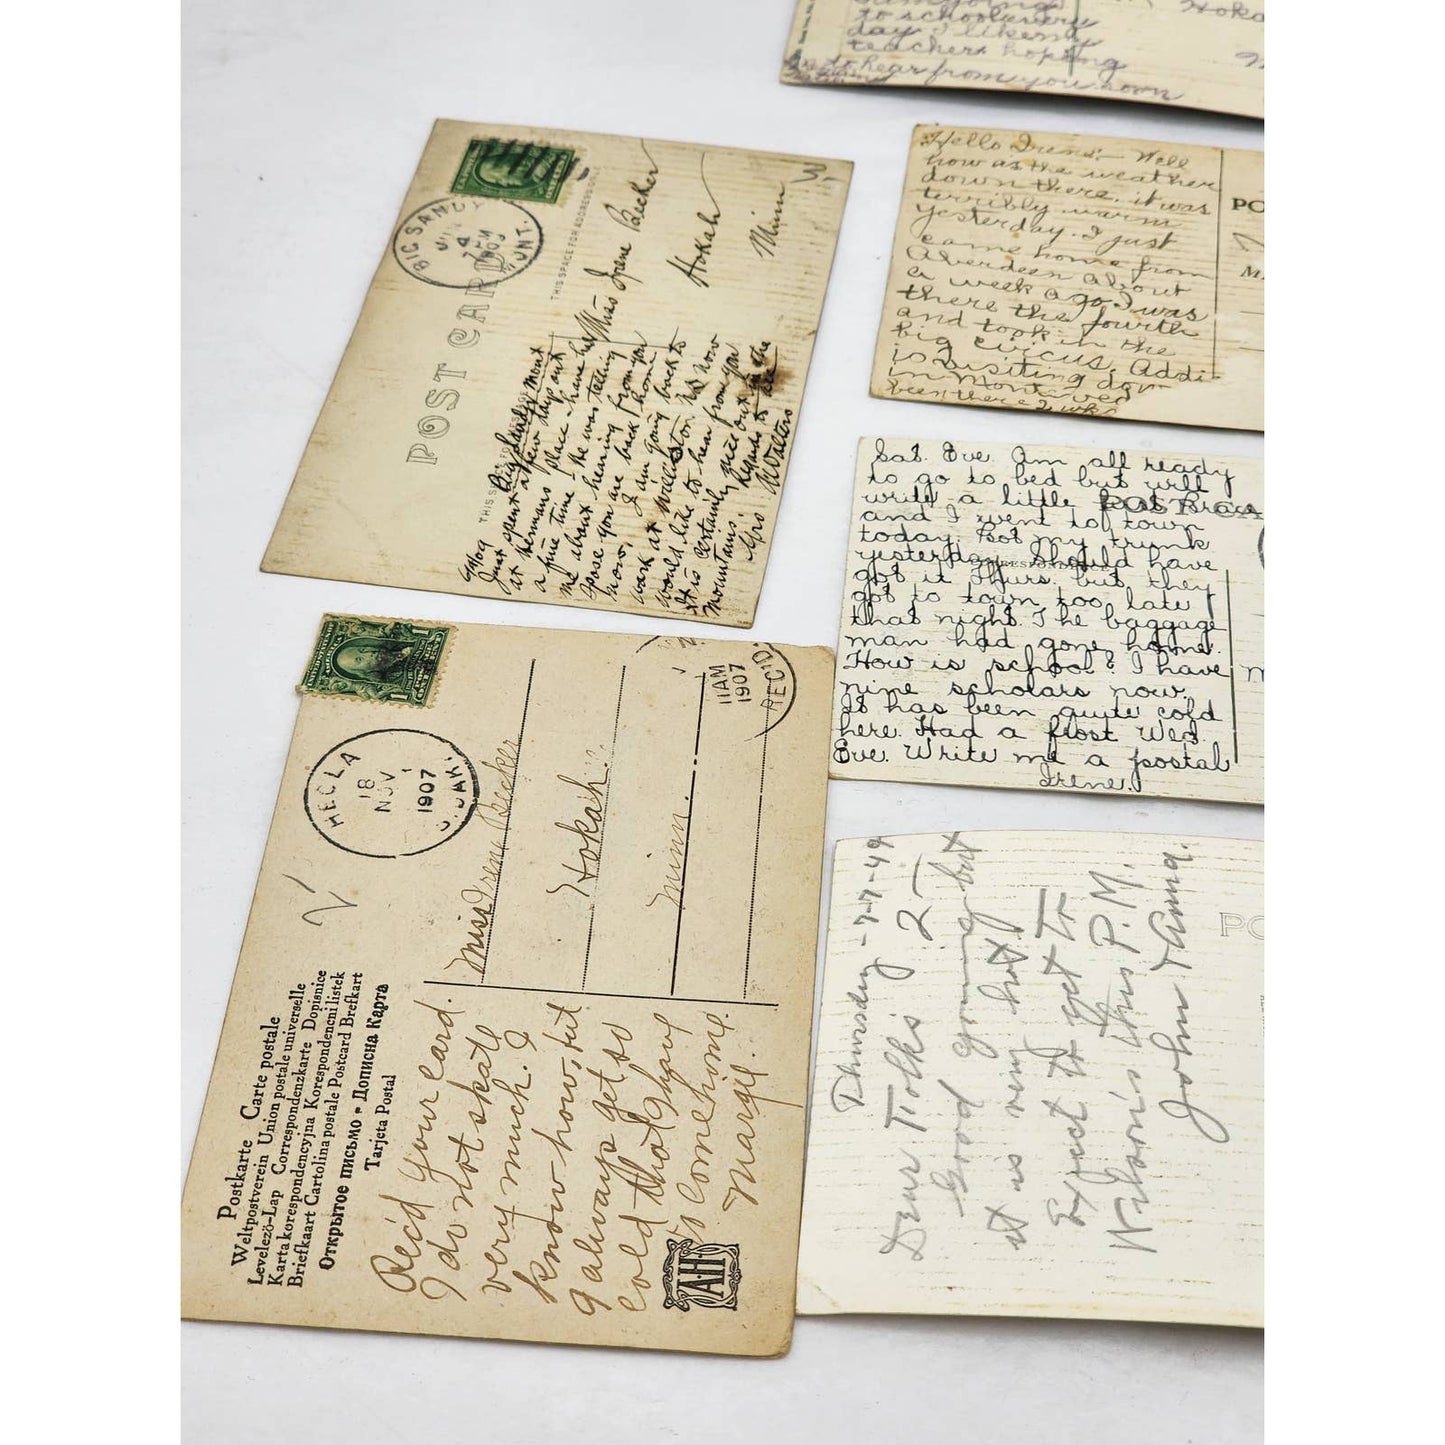 to school every
day I like my
teacher hoping
to hear from you soon
Hoka
BIG SANDY
4
1909
MONT.
POST CARD
THIS SPACE FOR ADDRESS ONLY
Miss Irene Becker
Hokah
Minn
Big Sandy Mont
Just spent a few days out
at Hermans place - have had
a fine time - He was telling
me about hearing from you
spose you are back home
now, I am going back to
work at Williston ND now
would like to hear from you
It is certainly nice out in the
mountains. Regards to all
Mrs Walters
Hello Irene:- Well
how as the weather
down there. it was
terribly warm
yesterday. I just
came home from
Aberdeen about
a week ago I was
there the fourth
and took in the
big circus. Addi-
is visiting down
in Mont. ved
been there 2 wks
PO
Sat. Eve. Am all ready
to go to bed but will
write a little first.
and I went to town
today. Got my trunk
yesterday. Should have
got it Thurs. but they
got to town too late
that night. The baggage
man had gone home.
How is school? I have
nine scholars now.
It has been quite cold
here. Had a frost Wed.
Eve. Write me a postal
Irene.
POST CA
HECLA
18
NOV
1907
S. DAK.
11 AM
1907
REC'D.
Miss Irene Becker
Hokah.
Minn.
Postkarte Carte postale
Weltpostverein Union postale universelle
Levelező-Lap Correspondenzkarte Dopisnice
Karta korespondencyjna Korespondencni listek
Briefkaart Cartolina postale Postcard Brefkart
Открытое письмо • Дописна Карта
Tarjeta Postal
Rec'd your card.
I do not skate
very much. I
know how, but
I always get so
cold that I have
to come home.
Margie.
A.H.
Thursday - 7-7-49
Dear Folks 2
Good going but
it is very hot.
Expect to get to
Wilson's this P.M.
John & Anna.
PO